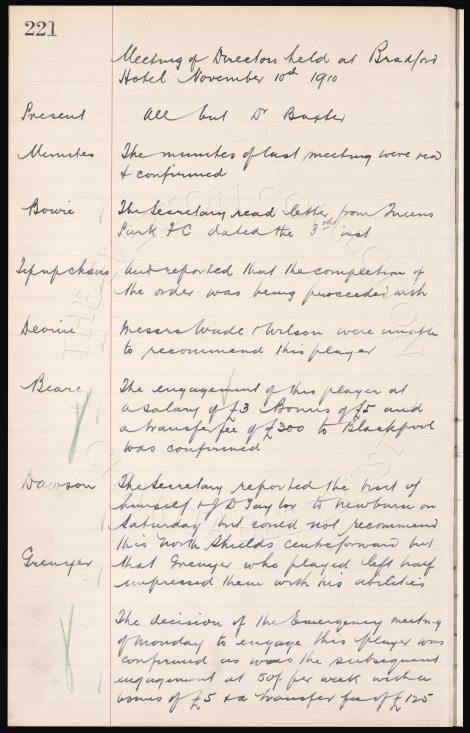 221
Meeting of Directors held at Bradford
Hotel November 10th 1910
Present All but Dr Baxter
Minutes The minutes of last meeting were read
& confirmed
Bowie The Secretary read letter from Queens
Park FC dated the 3rd inst
Tipup chairs And reported that the completion of
the order was being proceeded with
Devine Messrs Wade & Wilson were unable
to recommend this player
Beare The engagement of this player at
a salary of £3 Bonus of £5 and
a transfer fee of £300 to Blackpool
was confirmed
Dawson The Secretary reported the visit of
himself & J D Taylor to Newburn on
Saturday but could not recommend
this North Shields centreforward but
Grenyer that Grenyer who played left half
impressed them with his abilities
The decision of the Emergency meeting
of Monday to engage this player was
confirmed as was the subsequent
engagement at 50/ per week with a
bonus of £5 & a transfer fee of £125
THE EVERTON COLLECTION